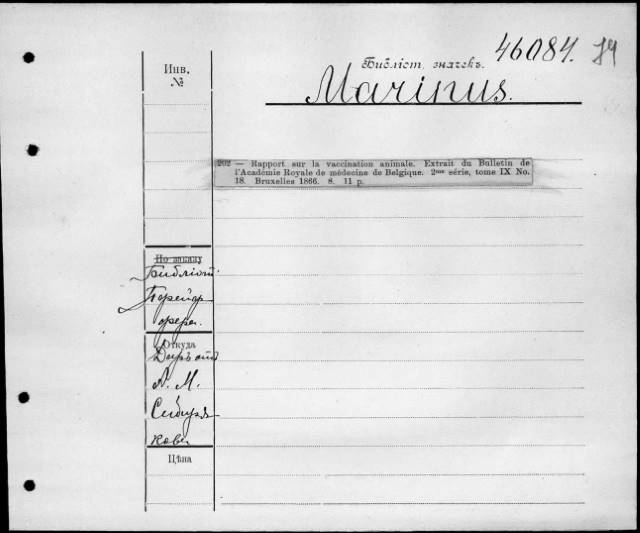 46084. 79
Библіот. значекъ.
Marinus.
Инв.
№
202 — Rapport sur la vaccination animale. Extrait du Bulletin de
l'Académie Royale de médecine de Belgique. 2me série, tome IX No.
18. Bruxelles 1866. 8. 11 p.
По заказу
Библіот.
Откуда
Даръ отъ
А. М.
Сибиря-
кова
Цѣна